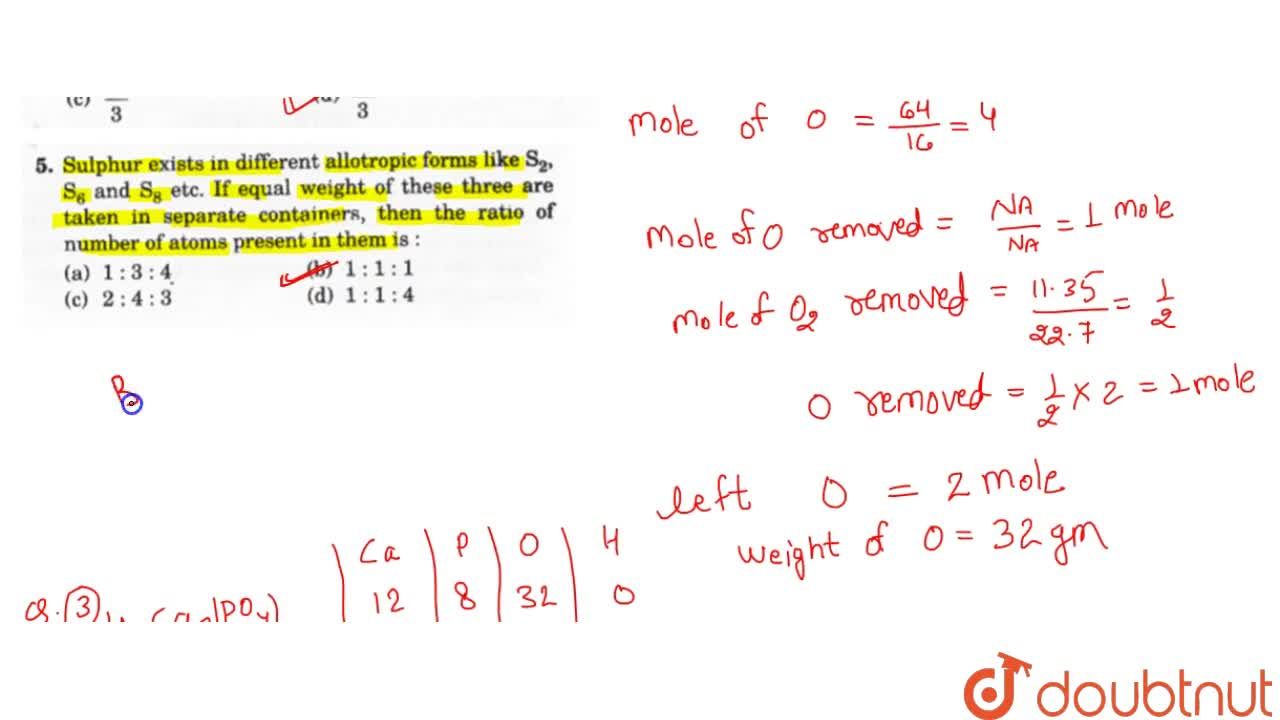 (c) 3
3
5. Sulphur exists in different allotropic forms like S₂,
S₆ and S₈ etc. If equal weight of these three are
taken in separate containers, then the ratio of
number of atoms present in them is :
(a) 1 : 3 : 4
(b) 1 : 1 : 1
(c) 2 : 4 : 3
(d) 1 : 1 : 4
mole of O = 64/16 = 4
Mole of O removed = NA/NA = 1 mole
mole of O₂ removed = 11.35/22.7 = 1/2
O removed = 1/2 × 2 = 1 mole
left O = 2 mole
weight of O = 32 gm
Ca | P | O | H
12 | 8 | 32 | 0
Q. 3
doubtnut